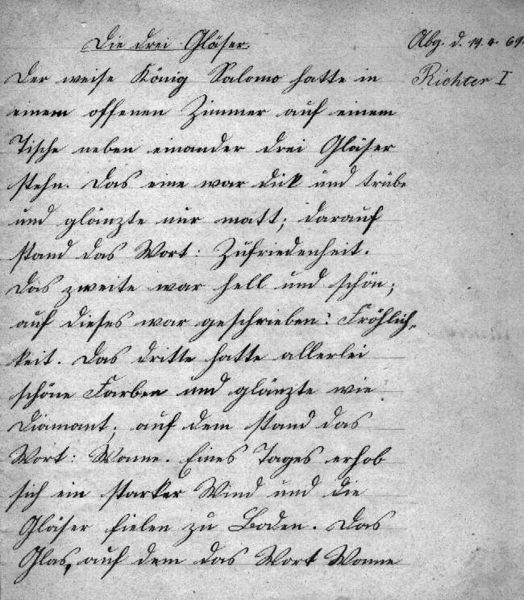 Die drei Gläser.
Abg. d. 19. 4. 69.
Richter I
Der weise König Salomo hatte in
einem offenen Zimmer auf einem
Tische neben einander drei Gläser
stehn. Das eine war dick und trübe
und glänzte nur matt; darauf
stand das Wort: Zufriedenheit.
Das zweite war hell und schön;
auf dieses war geschrieben: Fröhlich-
keit. Das dritte hatte allerlei
schöne Farben und glänzte wie
Diamant; auf dem stand das
Wort: Wonne. Eines Tages erhob
sich ein starker Wind und die
Gläser fielen zu Boden. Das
Glas, auf dem das Wort Wonne